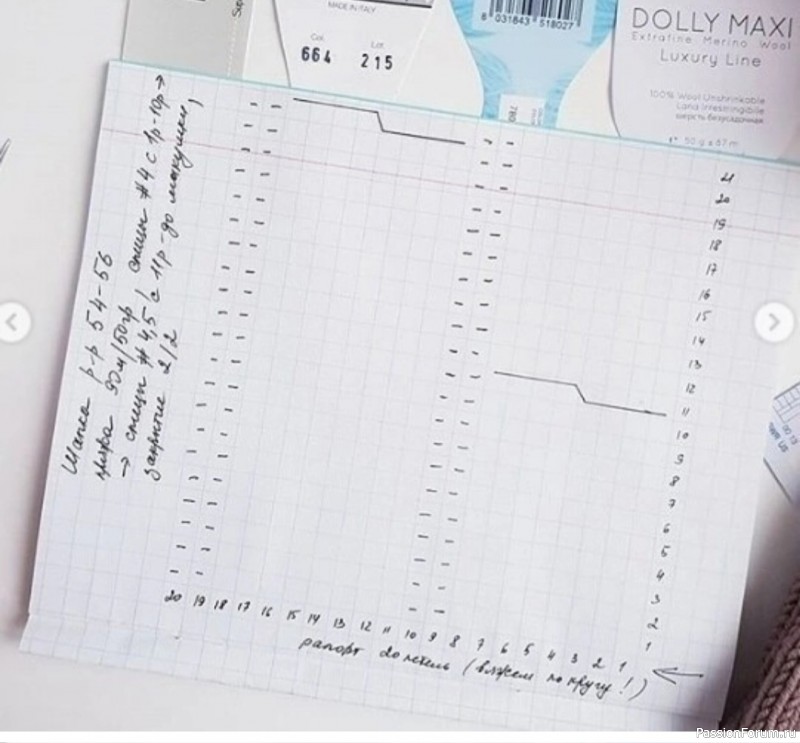 MADE IN ITALY
Col.
Lot
664
215
8 031843 518027
DOLLY MAXI
Extrafine Merino Wool
Luxury Line
100% Wool Unshrinkable
Lana Irrestringibile
шерсть безусадочная
50 g ± 87 m
Шапка р-р 54-56
пряжа 90м/50гр
спицы #4 с 1р-10р →
→ спицы #4,5 с 11р - до макушки,
закрытие 2/2
21
20
19
18
17
16
15
14
13
12
11
10
9
8
7
6
5
4
3
2
1
20 19 18 17 16 15 14 13 12 11 10 9 8 7 6 5 4 3 2 1
рапорт 20 петель (вяжем по кругу!)
PassionForum.ru